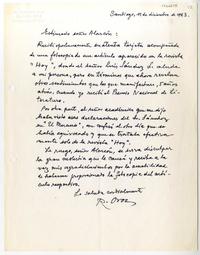 Santiago, 19 de diciembre de 1983.
Estimado señor Alarcón:
Recibí oportunamente su atenta tarjeta acompañada
una fotocopia de un artículo aparecido en la revista
"Hoy", donde el señor Luis Sánchez L. alude
a mi persona, pero en términos que ahora revelan
otros sentimientos que los que manifestara, años
atrás, cuando yo recibí el Premio Nacional de Li-
teratura.
Por otra parte, el señor académico que me dijo
haber visto esas declaraciones del Sr. Sánchez
en "El Mercurio", me confesó el otro día que se
había equivocado y que se trataba efectiva
mente sólo de la revista "Hoy".
Le ruego, señor Alarcón, se sirva disculpar
la gran molestia que le causé y reciba a la
vez mis agradecimientos por la amabilidad
de haberme proporcionado la fotocopia del artí-
culo respectivo.
Le saluda cordialmente
R. Oroz